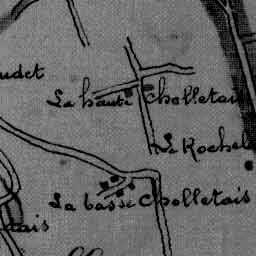 udet
La haute Cholletais
Le Rochel
La basse Cholletais
tais